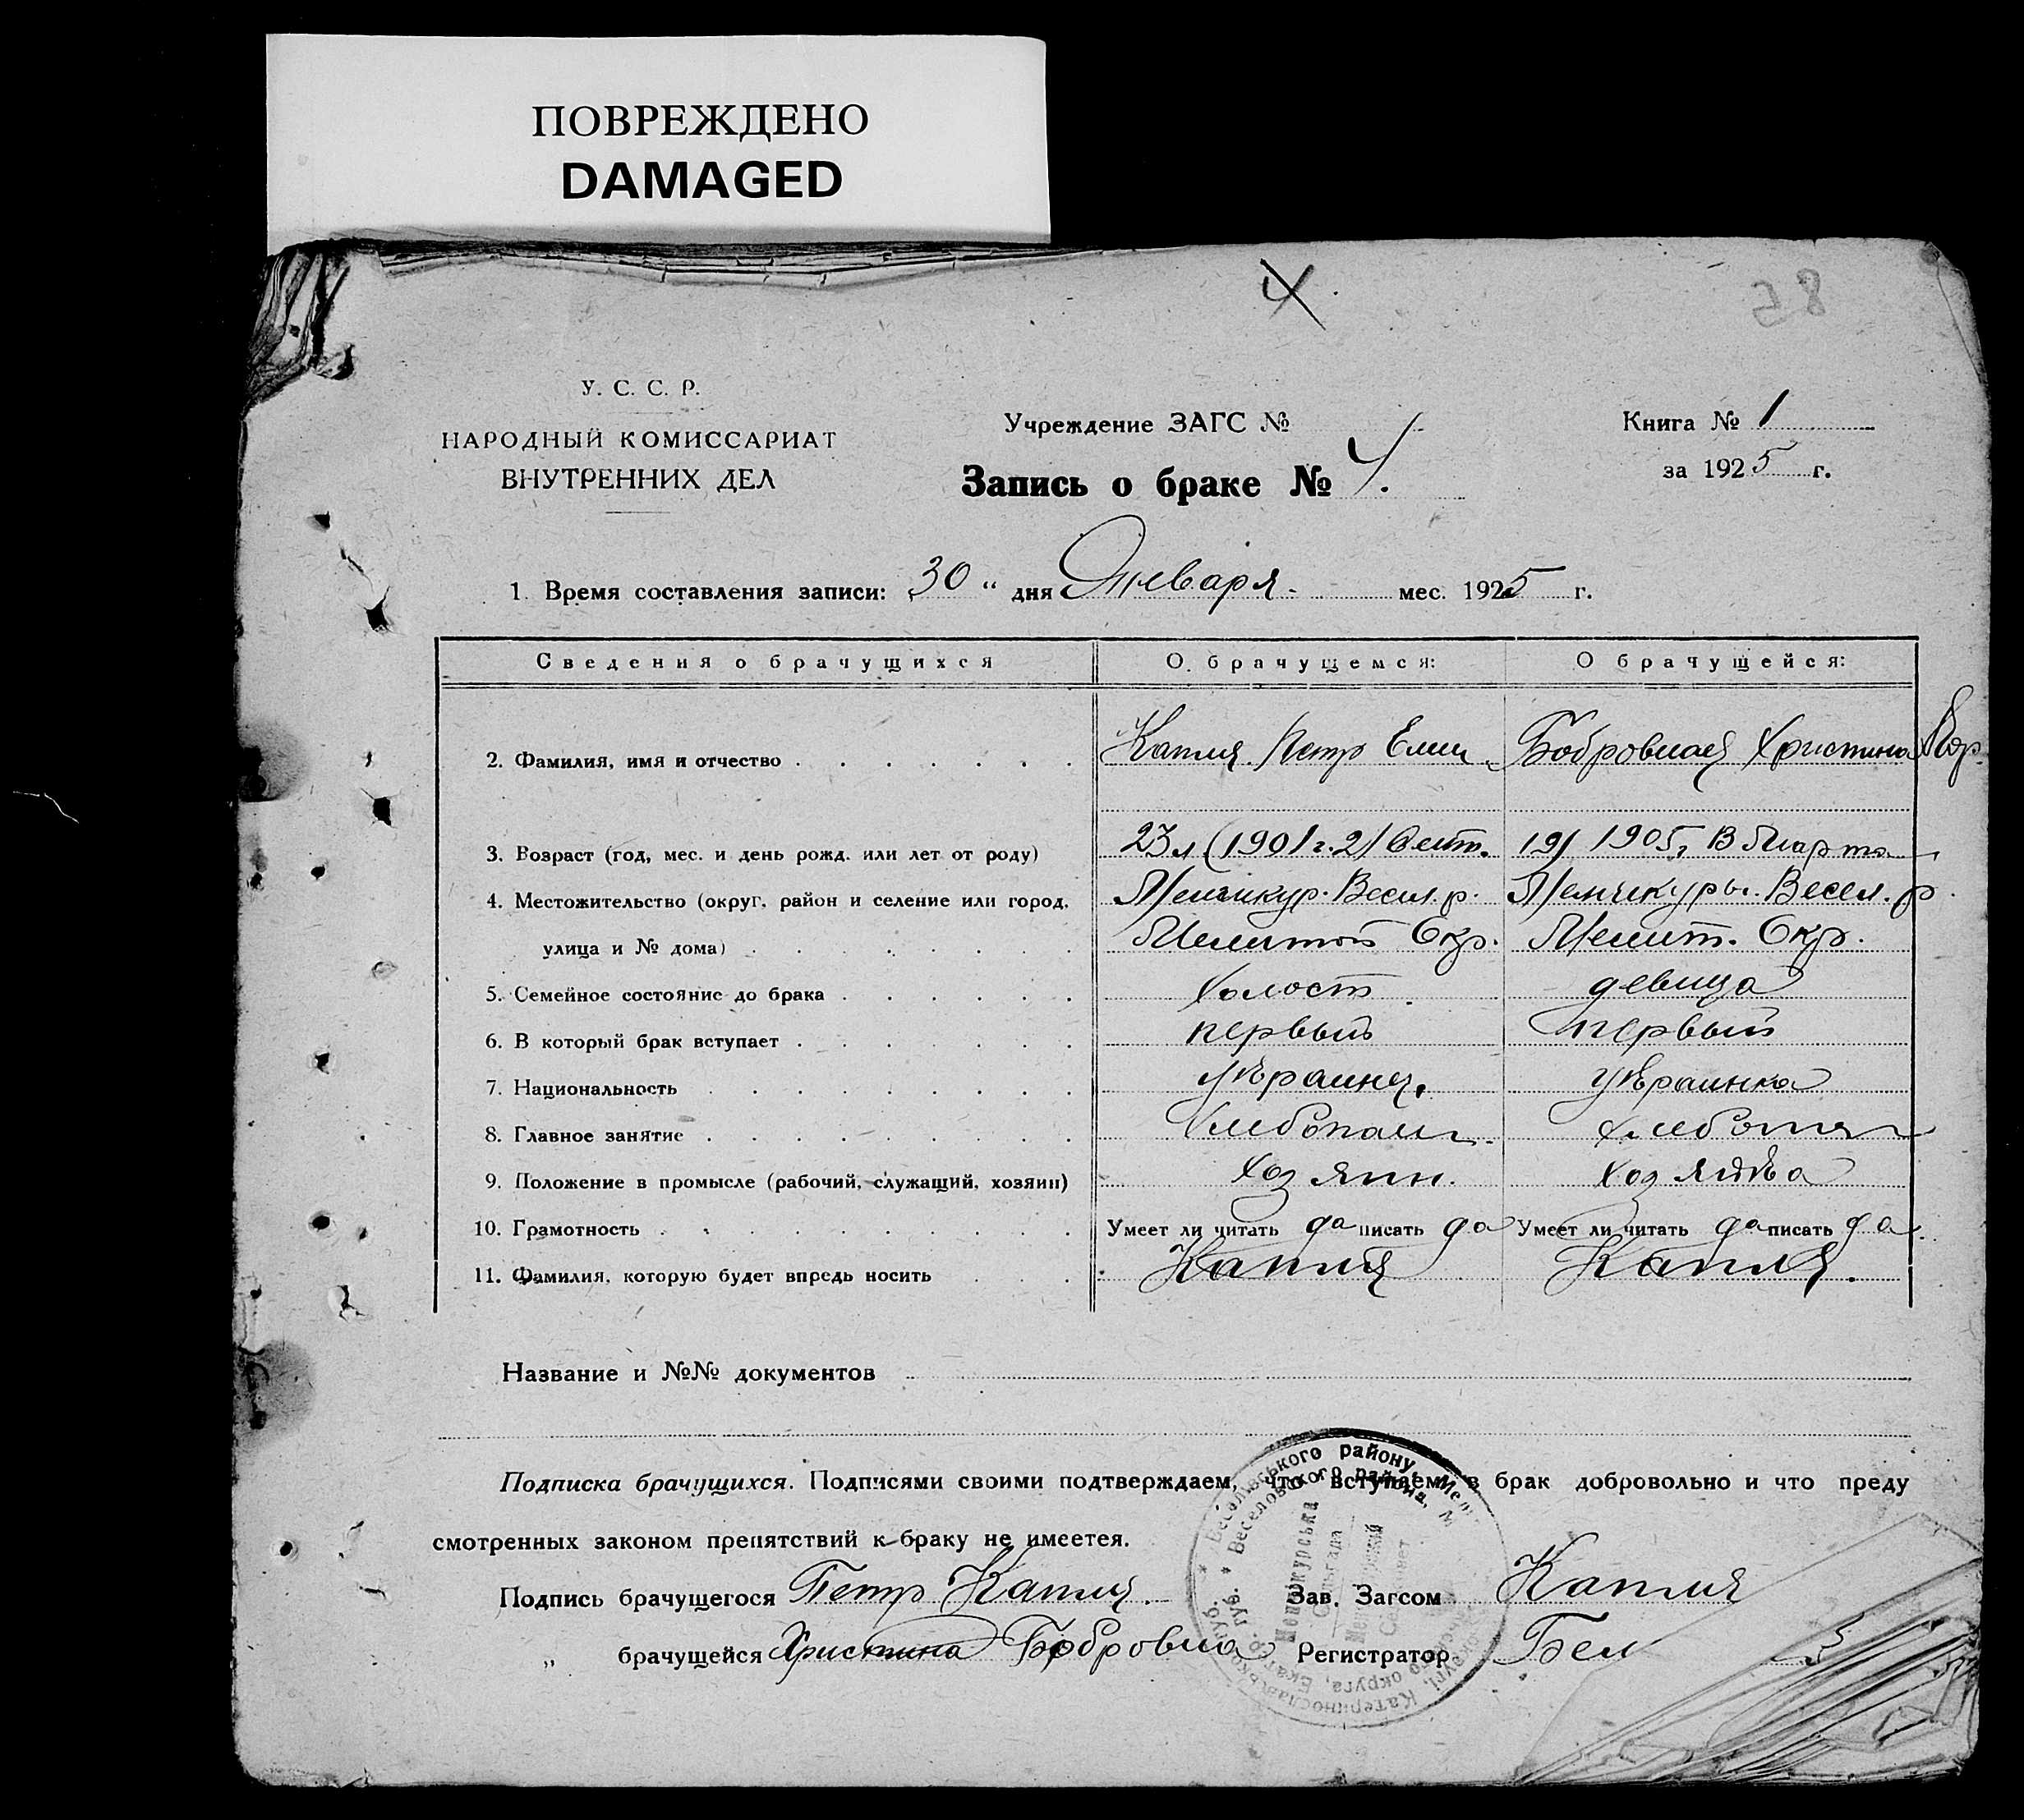 ПОВРЕЖДЕНО
DAMAGED
4
58
У. С. С. Р.
НАРОДНЫЙ КОМИССАРИАТ
ВНУТРЕННИХ ДЕЛ
Учреждение ЗАГС №
Запись о браке № 4.
Книга № 1
за 1925 г.
1. Время составления записи: 30 “ дня Января. мес. 1925 г.
Сведения о брачущихся О. брачущемся: О брачущейся:
2. Фамилия, имя и отчество Капля Петр Емил Бобровная Христина
3. Возраст (год, мес. и день рожд. или лет от роду) 23 л (1901 г. 21 Сент. 19/ 1905, 13 Марта
4. Местожительство (округ, район и селение или город, Менчикур. Весел. р. Менчикуры. Весел. р.
улица и № дома) Мелитоп Окр. Мелит. Окр.
5. Семейное состояние до брака холост девица
6. В который брак вступает первый первый
7. Национальность украинец. украинка
8. Главное занятие
9. Положение в промысле (рабочий, служащий, хозяин) хозяин. хозяйка
10. Грамотность Умеет ли читать да писать да Умеет ли читать да писать да.
11. Фамилия, которую будет впредь носить Капля Капля.
Название и №№ документов
Подписка брачущихся. Подписями своими подтверждаем, что вступаем в брак добровольно и что преду
смотренных законом препятствий к браку не имеетея.
Подпись брачущегося Петр Капля. Зав. Загсом Капля
„ брачущейся Христина Бобровна Регистратор Бел
* Веселівського району, Мел
* Веселовского района, М
Менчикурська
Сільрада
Менчикурский
Сельсовет
Катеринославської губ.
округа, Екат. губ.